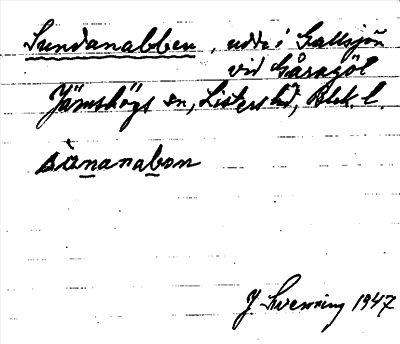 Sundanabben, udde i Gallsjön
vid Gåragöl
Jämshögs sn, Listers hd, Blek. l.
sònanabon
J Svenning 1947